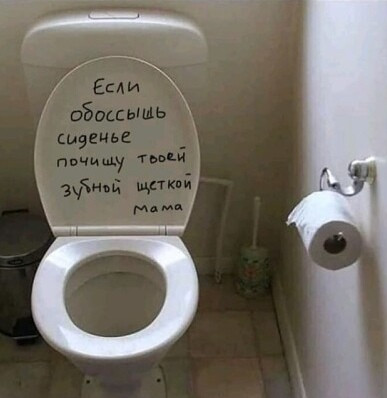 Если
обоссышь
сиденье
почищу твоей
зубной щеткой
мама